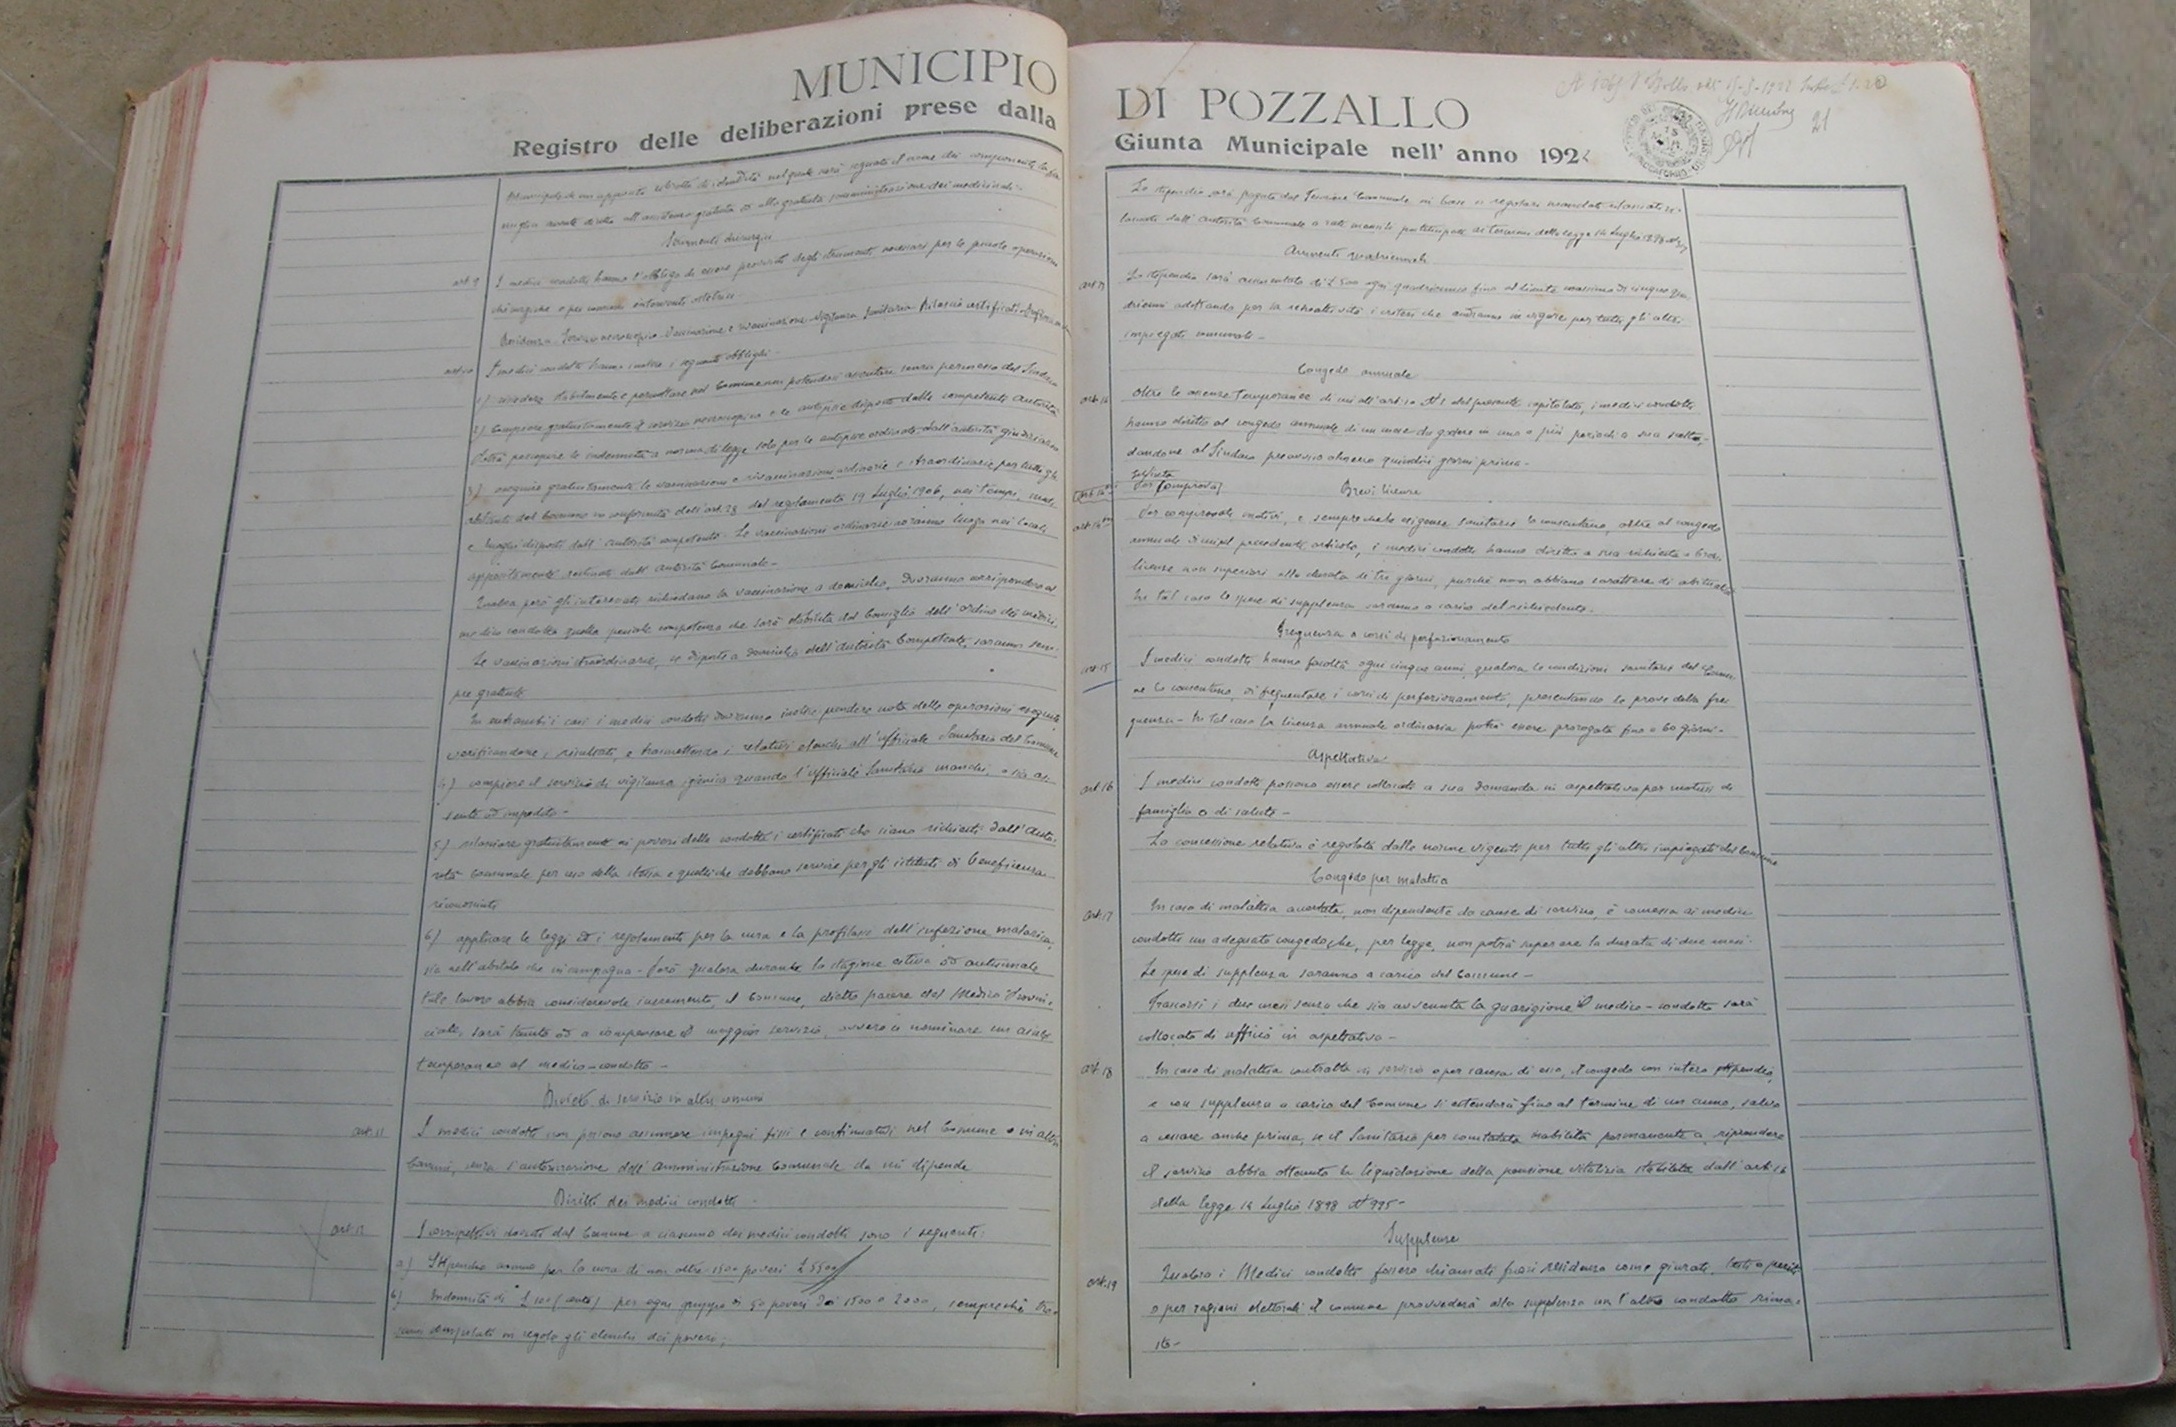 MUNICIPIO
Registro delle deliberazioni prese dalla
miglia avente diritto all'assistenza gratuita ed alla gratuita somministrazione dei medicinali.
Strumenti chirurgici
art. 9 I medici condotti hanno l'obbligo di essere provvisti degli strumenti necessari per le piccole operazioni
chirurgiche e per comuni interventi ostetrici.
Residenza Servizio necroscopico Vaccinazione e rivaccinazione Vigilanza Sanitaria Rilascio certificati
art. 10 I medici condotti hanno inoltre i seguenti obblighi
1) risiedere stabilmente e pernottare nel Comune non potendosi assentare senza permesso del Sindaco
2) Compiere gratuitamente il servizio necroscopico e le autopsie disposte dalle competenti autorità
Potrà percepire le indennità a norma di legge solo per le autopsie ordinate dall'autorità giudiziaria
3) eseguire gratuitamente le vaccinazioni e rivaccinazioni ordinarie e straordinarie per tutti gli
abitanti del Comune in conformità dell'art. 28 del regolamento 19 Luglio 1906, nei tempi, modi
e luoghi disposti dall'autorità competente. Le vaccinazioni ordinarie avranno luogo nei locali
appositamente destinati dall'autorità Comunale-
Qualora però gli interessati richiedano la vaccinazione a domicilio, dovranno corrispondere al
medico condotto quella speciale competenza che sarà stabilita dal Consiglio dell'Ordine dei medici.
Le vaccinazioni straordinarie, se disposte a domicilio dell'autorità Competente, saranno sem-
pre gratuite
In entrambi i casi i medici condotti dovranno inoltre prendere nota delle operazioni eseguite
verificandone i risultati, e trasmettendo i relativi elenchi all'ufficiale Sanitario del Comune
4) compiere il servizio di vigilanza igienica quando l'ufficiale Sanitario manchi, o sia as-
sente od impedito-
5) rilasciare gratuitamente ai poveri della condotta i certificati che siano richiesti dall'Auto-
rità comunale per uso della stessa e quelli che debbono servire per gli istituti di beneficenza
riconosciuti
6) applicare le leggi ed i regolamenti per la cura e la profilassi dell'infezione malarica,
sia nell'abitato che in campagna- Però qualora durante la stagione estiva ed autunnale
tale lavoro abbia considerevole incremento, il Comune, dietro parere del Medico Provin-
ciale, sarà tenuto od a compensare il maggior servizio, ovvero a nominare un
temporaneo al medico-condotto-
Divieto di servizio in altri comuni
art. 11 I medici condotti non possono assumere impegni fissi e continuativi nel Comune o in altri
Comuni, senza l'autorizzazione dell'Amministrazione Comunale da cui dipende
Diritti dei medici condotti
art. 12 I corrispettivi dovuti dal Comune a ciascuno dei medici condotti sono i seguenti:
a) Stipendio annuo per la cura di non oltre 1500 poveri £ 5500
b) Indennità di £ 100 (cento) per ogni gruppo di 50 poveri dai 1500 a 2000, sempreché
compilati in regola gli elenchi dei poveri;
DI POZZALLO
Giunta Municipale nell' anno 192
21
Lo stipendio sarà pagato dal Tesoriere Comunale in base a regolari mandati
dall'Autorità Comunale a rate mensili posticipate ai termini della legge 14 Luglio 1898
Aumenti quadriennali
art. 13 Lo stipendio sarà aumentato di £ 500 ogni quadriennio fino al limite massimo di cinque qua-
drienni adottando per la retroattività i criteri che andranno in vigore per tutti gli altri
impiegati comunali-
Congedo annuale
art. 14 Oltre le assenze temporanee di cui all'art. 10 N. 1 del presente capitolato, i medici condotti
hanno diritto al congedo annuale di un mese da godere in uno o più periodi a sua scelta,
dandone al Sindaco preavviso almeno quindici giorni prima-
Brevi licenze
Per comprovati motivi, e sempreché esigenze sanitarie lo consentano, oltre al congedo
annuale di cui nel precedente articolo, i medici condotti hanno diritto a sua richiesta a brevi
licenze non superiori alla durata di tre giorni, purché non abbiano carattere di abitualità
In tal caso le spese di supplenza saranno a carico del richiedente.
Frequenza a corsi di perfezionamento
art. 15 I medici condotti hanno facoltà ogni cinque anni, qualora le condizioni sanitarie del Comu-
ne lo consentano, di frequentare i corsi di perfezionamento, presentando le prove della fre-
quenza- In tal caso la licenza annuale ordinaria potrà essere prorogata fino a 60 giorni-
Aspettativa
art. 16 I medici condotti possono essere collocati a sua domanda in aspettativa per motivi di
famiglia o di salute-
La concessione relativa è regolata dalle norme vigenti per tutti gli altri impiegati del Comune
Congedo per malattia
art. 17 In caso di malattia accertata, non dipendente da cause di servizio, è concesso ai medici
condotti un adeguato congedo che, per legge, non potrà superare la durata di due mesi.
Le spese di supplenza saranno a carico del Comune-
Trascorsi i due mesi senza che sia avvenuta la guarigione il medico-condotto sarà
collocato di ufficio in aspettativa-
art. 18 In caso di malattia contratta in servizio o per causa di esso, il congedo con intero stipendio,
e con supplenza a carico del Comune si estenderà fino al termine di un anno, salvo
a cessare anche prima, se il Sanitario per constatata inabilità permanente a riprendere
il servizio abbia ottenuto la liquidazione della pensione vitalizia stabilita dall'art.
della legge 14 Luglio 1898 N° 995-
Supplenze
art. 19 Qualora i Medici condotti fossero chiamati fuori residenza come giurati, testi o periti
o per ragioni elettorali il comune provvederà alla supplenza con l'altro condotto rimas-
to-